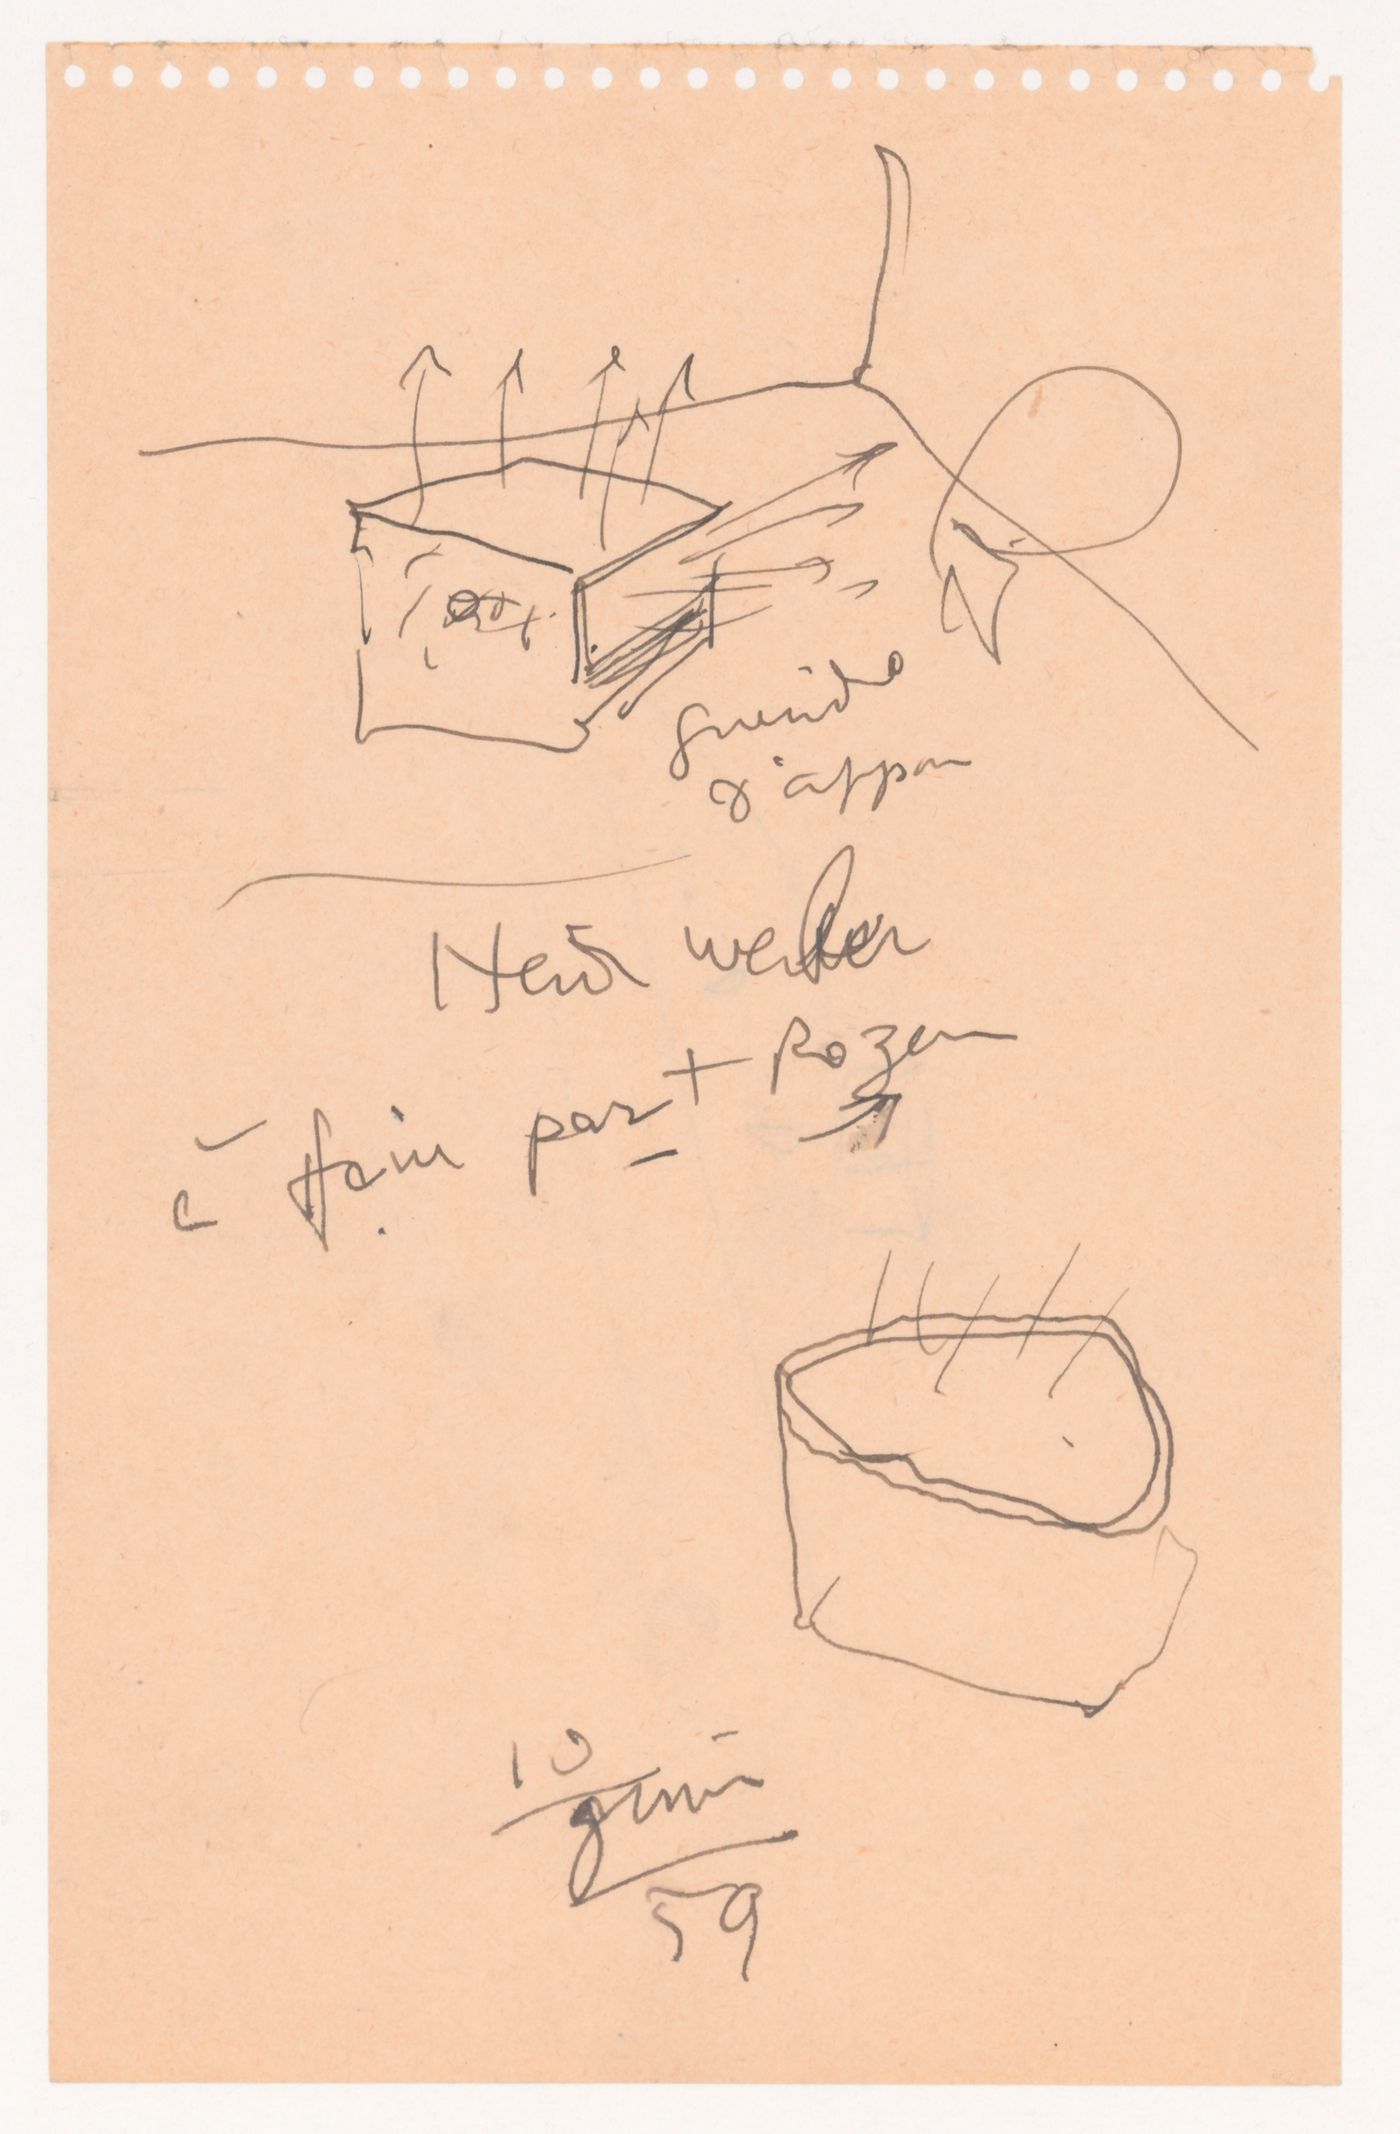 d'appar
Heidi weber
+ Rozen
à faire par
10
juin
59